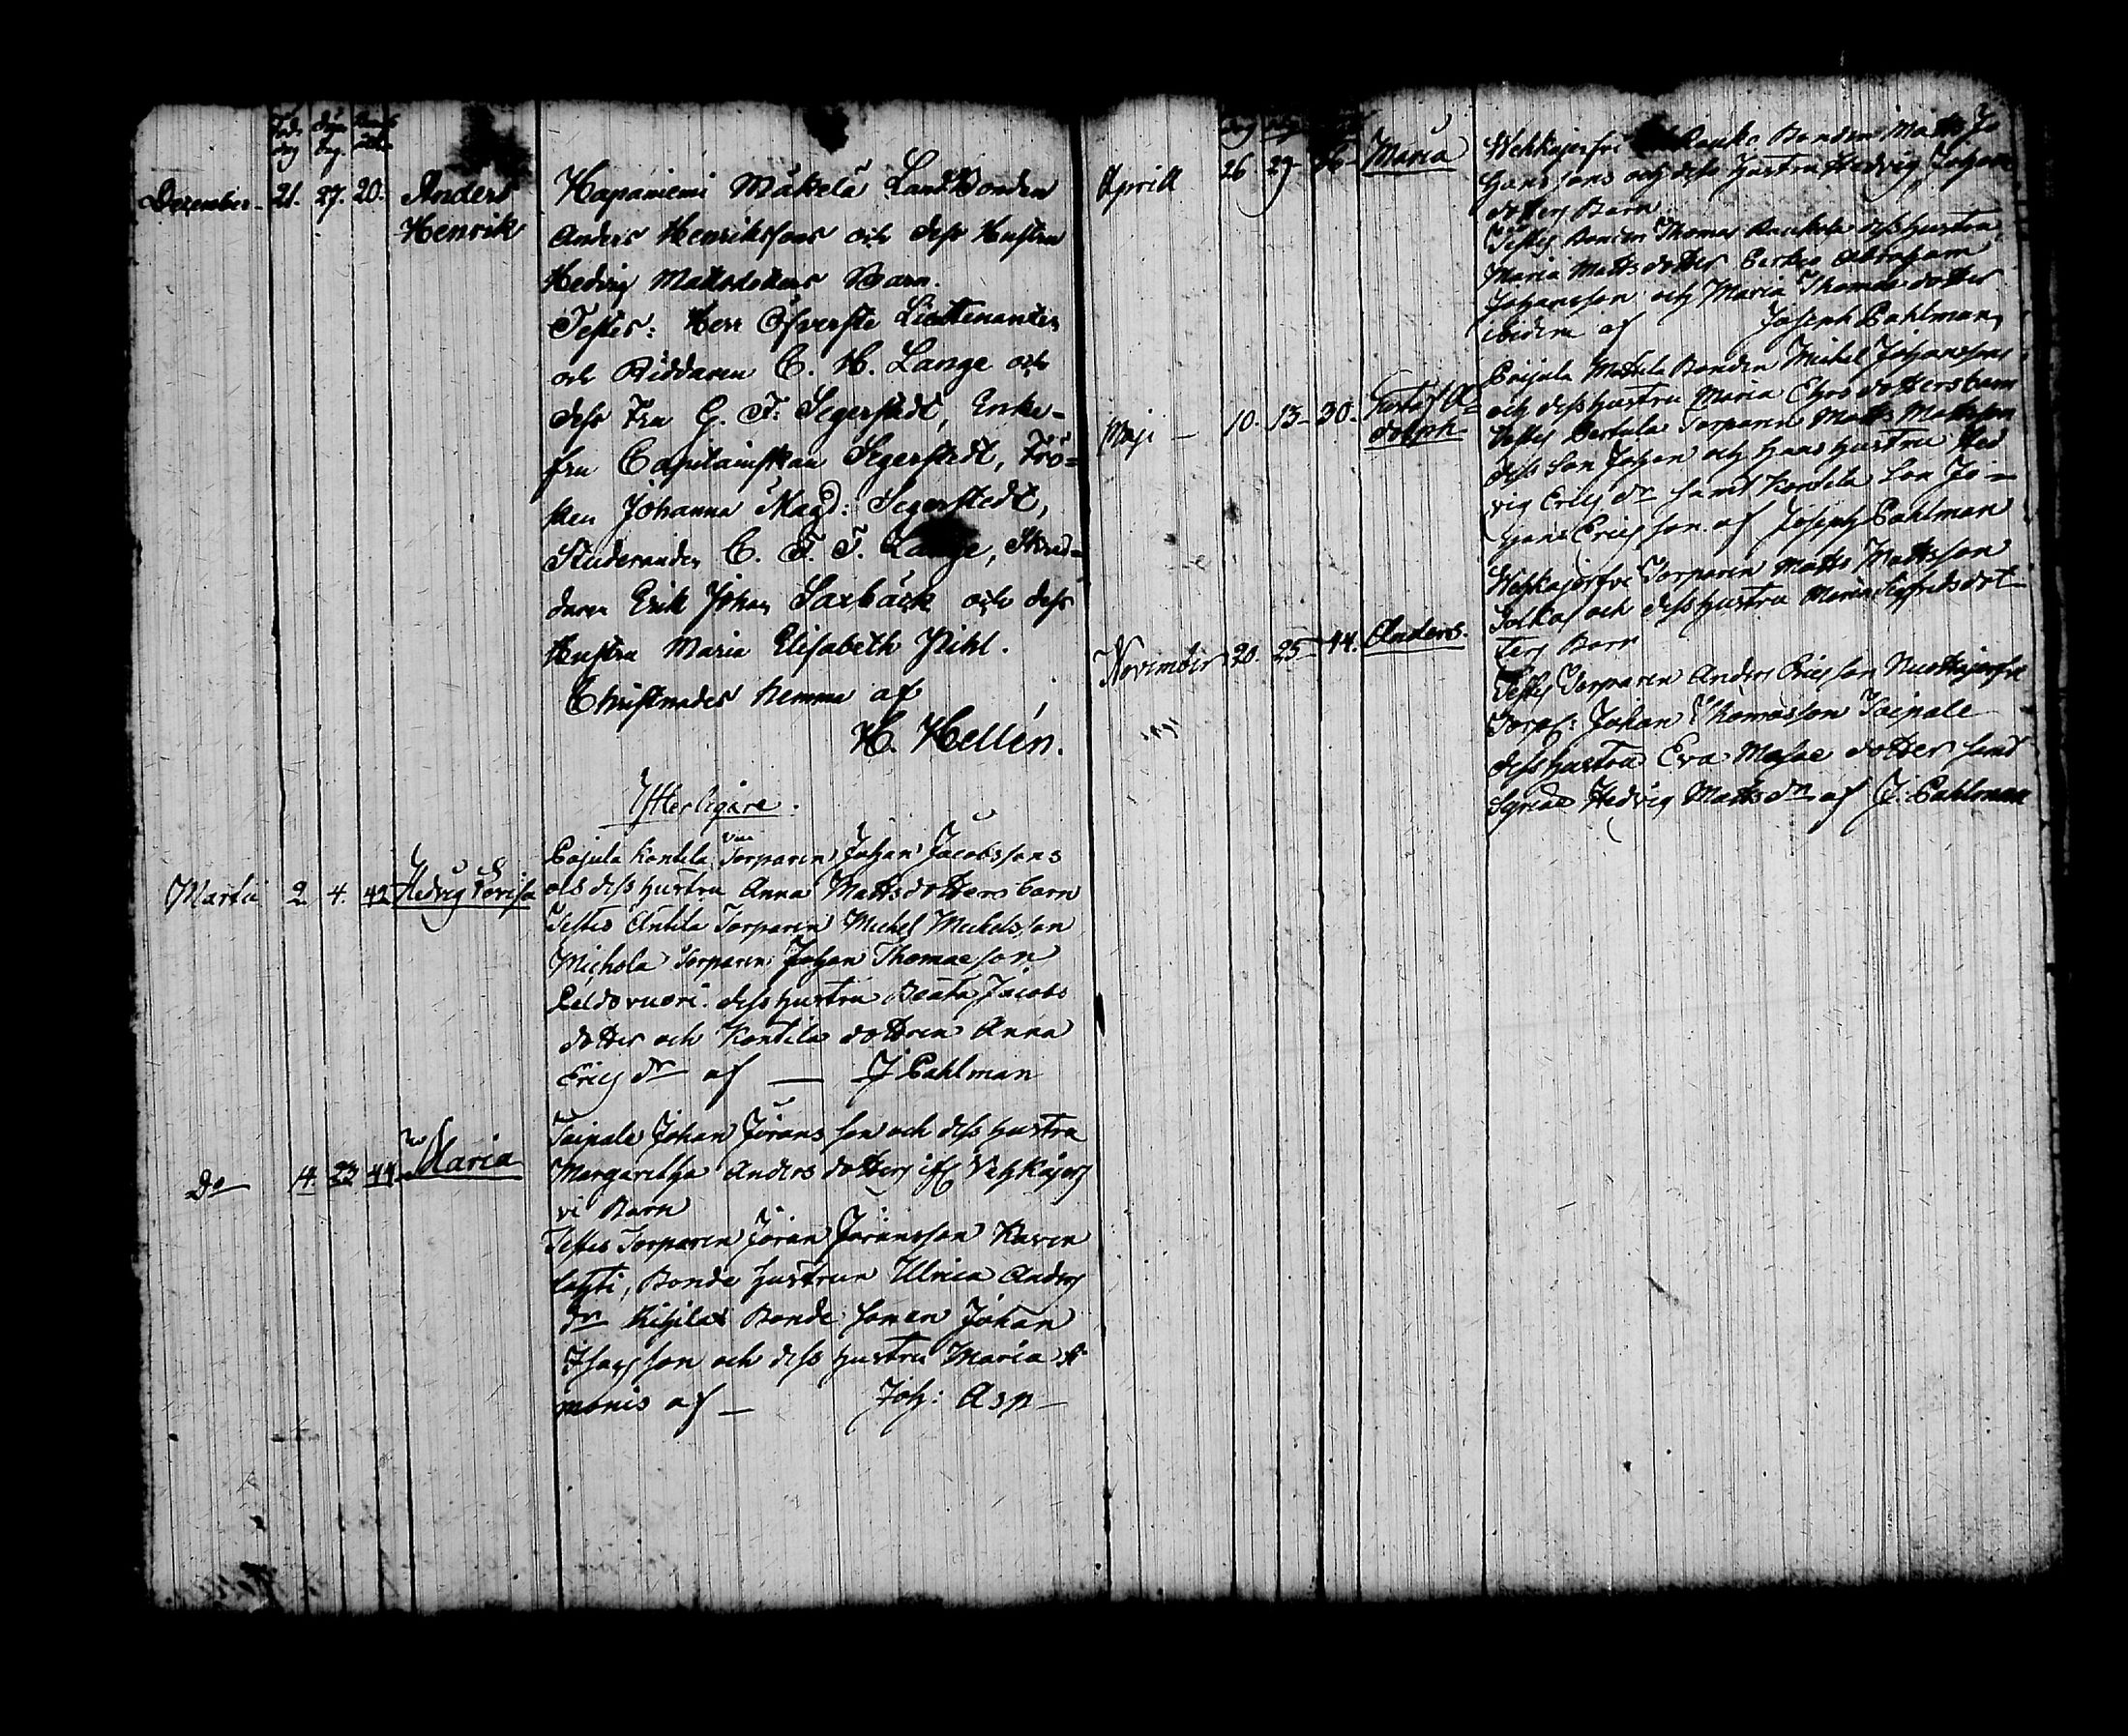 Föd. dag Döp. dag.
Dezember. 21. 27. 20. Anders Henrik
Hapaniemi Mäkelä Landbonden
Anders Henrikssons och dess Hustru
Hedvig Mattsdotters Barn.
Testes: Herr Öfverste Lieutenanten
och Riddaren C. H. Lange och
dess Fru G. F. Segerstedt, Enke-
fru Capitainskan Segerstedt, Frö-
ken Johanna Magd: Segerstedt,
Studeranden C. F. F. Lange, Skred-
daren Erik Johan Saxbäck och dess
Hustru Maria Elisabeth Pihl.
Christnades hemma af
H. Hellén.
Ytterligare.
Martii 2. 4. 42 Hedvig Lovisa
Pajula Kontila Torparen Johan Jacobssons
och dess hustru Anna Mattsdotters barn
Testes Antila Torparen Michel Michelsson
Michola Torparen Johan Thomaeson
Peldovuori. dess hustru Beata Jacobs
dotter och Kontila dottren Anna
Erics dr af — J Pahlman
Do 14. 23 44 Maria
Taipale Johan Jörans son och dess hustru
Margaretha Anders dotters Vehkajer
vi Barn
Testes Torparen Jöran Jöransson Haven
lahti, Bonde hustrun Ulrica Anders
dr Bonde sonen Johan
Isacsson och dess hustru Maria Si
monis af — Joh: Asp —
Aprill 26 27 36 Maria
Wehkajerfvi Rauko Bonden Matts Jo
hanssons och dess hustru Hedvig Johans
dotters Barn
Testes Bonden Thomas dess hustru
Maria Matts dotter Abraham
Johansson och Maria Thomae dotter
ibidem af Joseph Pahlman
Maji — 10. 13 — 30 — Gustaf A-
dolph
Pajula Mattila Bonden Michel Johanssons
och dess hustru Maria dotters barn
Testes Pertula Torparen Matts Mattsson
dess son Johan och hans hustru Hed
vig Erics dr samt Kontila son Jo —
hans Ericsson af Joseph Pahlman
November 20. 25 — 44. Anders.
Wehkajerfvi Torparen Matts Mattsson
Solkas och dess hustru Maria Sigfreds dot
ters Barn
Testes Torparen Anders Ericsson
Torp: Johan Thomasson Taipale
dess hustru Eva dotter samt
Hedvig Matts dr af J. Pahlman